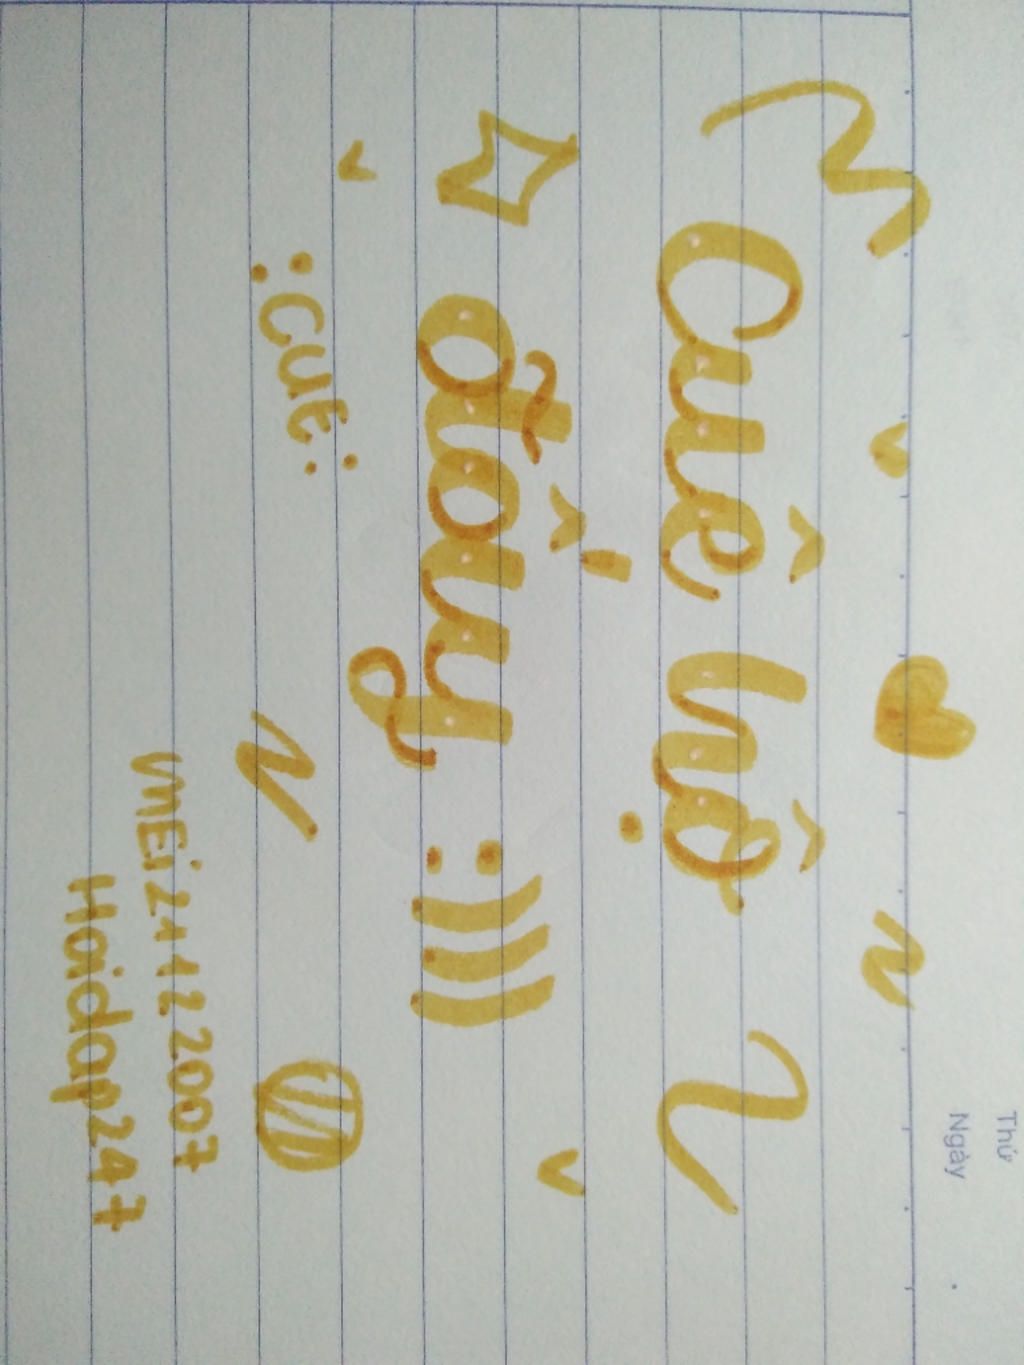 Thứ
Ngày
Cuê hộ
đấy :)))
:CUE:
MEi21122007
Hoidap247